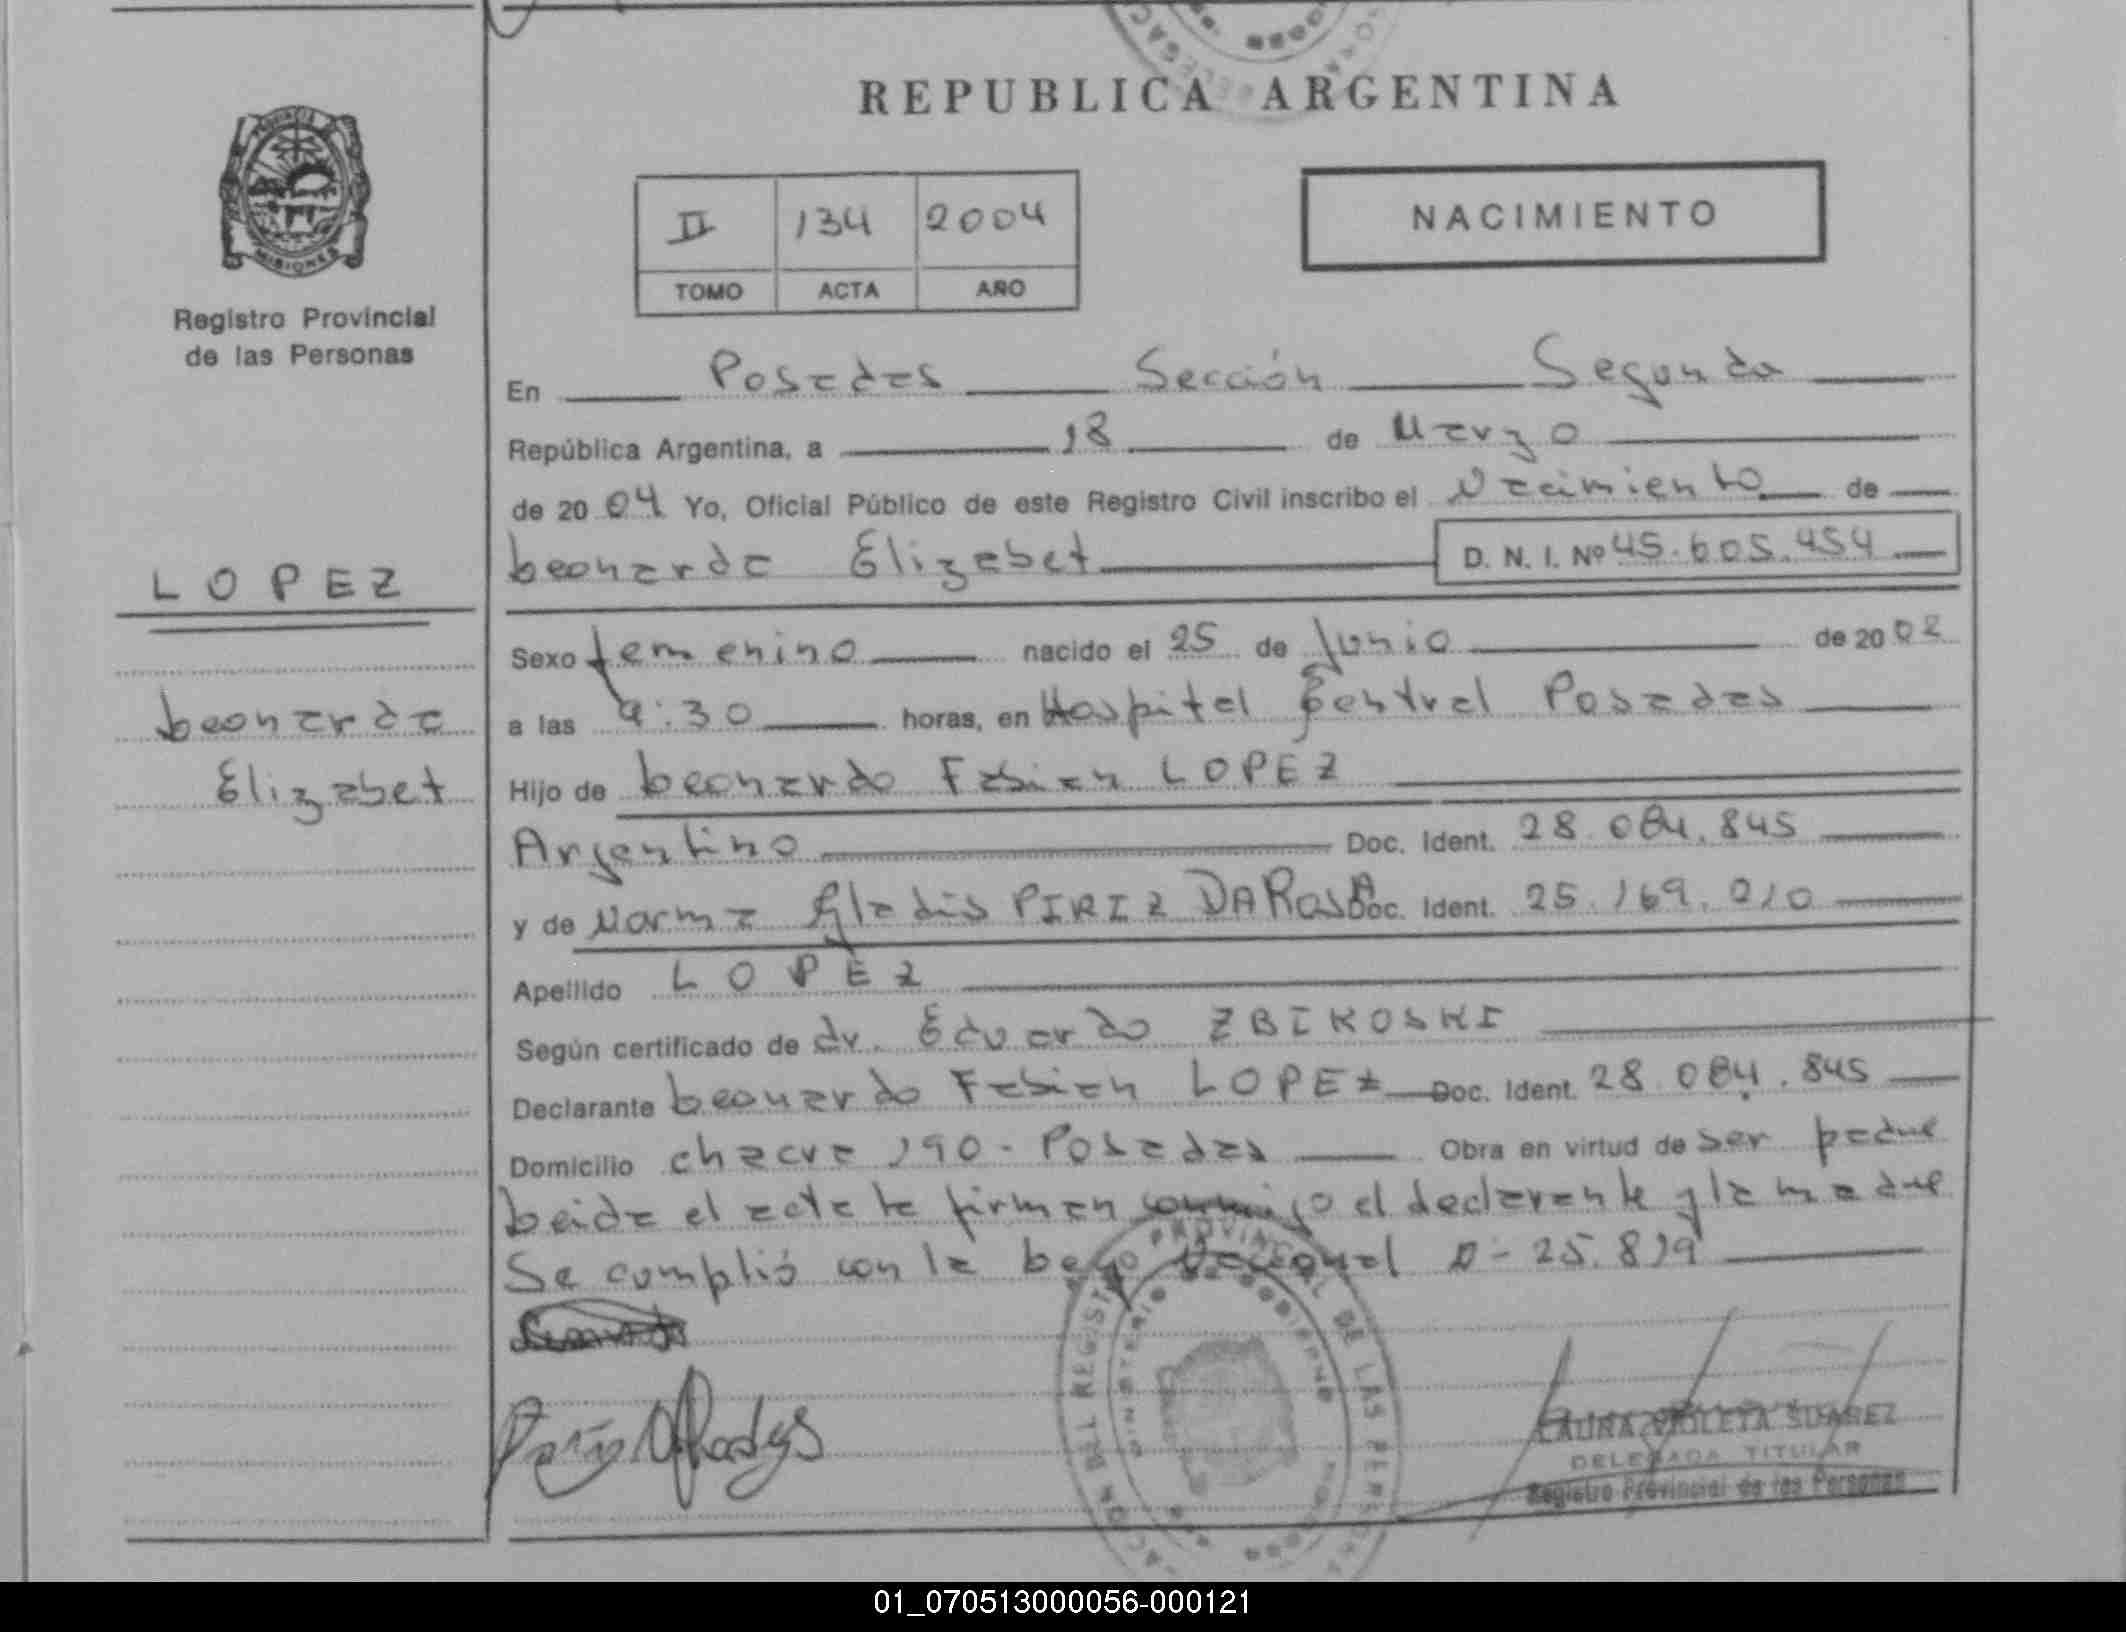 REPUBLICA ARGENTINA
PROVINCIA
MISIONES
Registro Provincial
de las Personas
II 134 2004
TOMO ACTA AÑO
NACIMIENTO
En Posadas Sección Segunda
República Argentina, a 18 de Marzo
de 2004 Yo, Oficial Público de este Registro Civil inscribo el Nacimiento de
Leonarda Elizabet D. N. I. Nº 45.605.454
LOPEZ
Leonarda
Elizabet
Sexo femenino nacido el 25 de Junio de 2002
a las 9:30 horas, en Hospital Central Posadas
Hijo de Leonardo Fabian LOPEZ
Argentino Doc. Ident. 28.084.845
y de Norma Gladis PIRIZ DAROSA Doc. Ident. 25.169.210
Apellido LOPEZ
Según certificado de dr. Eduardo ZBIKOSKI
Declarante Leonardo Fabian LOPEZ Doc. Ident. 28.084.845
Domicilio chacra 190 - Posadas Obra en virtud de ser padre
Leida el acta la firman conmigo el declarante y la madre
Se cumplió con la Ley Nacional 25.819
REGISTRO PROVINCIAL DE LAS PERSONAS
MINISTERIO DE GOBIERNO
LAURA VIOLETA SUAREZ
DELEGADA TITULAR
Registro Provincial de las Personas
01_070513000056-000121